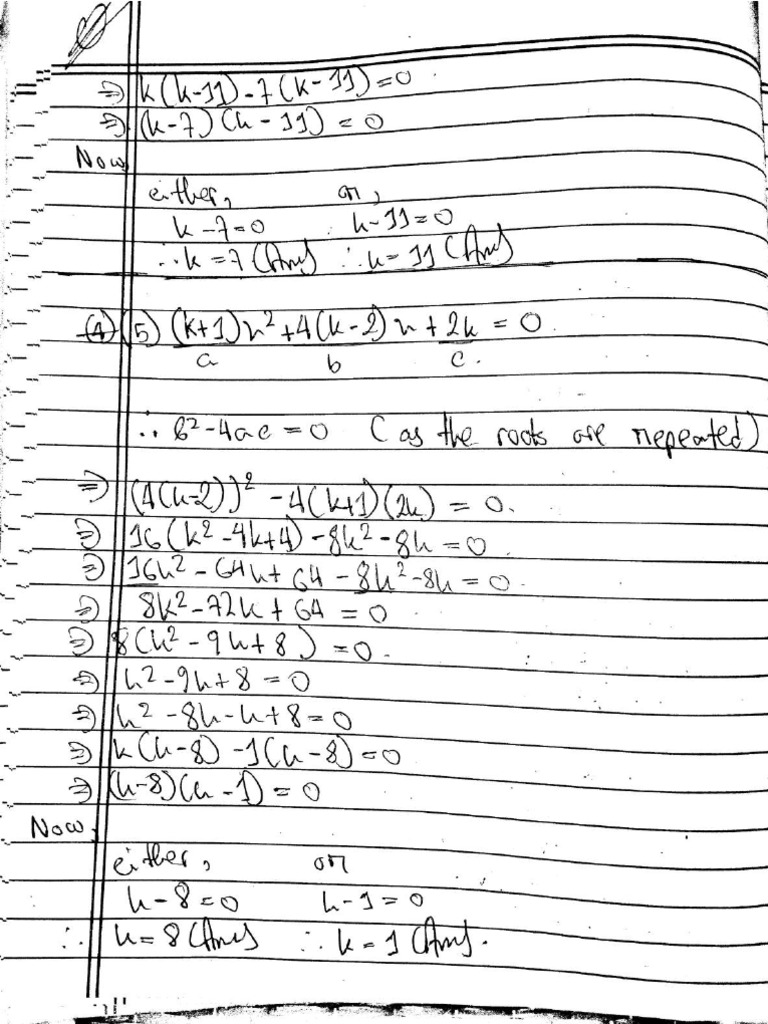 ⇒ k(k-11)-7(k-11)=0
⇒ (k-7)(k-11)=0
Now
either, or,
k-7=0 k-11=0
∴k=7 (Ans) ∴k=11 (Ans)
(5) (k+1)x²+4(k-2)x+2k=0
a b c.
∴ b²-4ac=0 (as the roots are repeated)
⇒ (4(k-2))² -4(k+1)(2k)=0.
⇒ 16(k²-4k+4)-8k²-8k=0
⇒ 16k²-64k+64-8k²-8k=0
⇒ 8k²-72k+64=0
⇒ 8(k²-9k+8)=0.
⇒ k²-9k+8=0
⇒ k²-8k-k+8=0
⇒ k(k-8)-1(k-8)=0
⇒ (k-8)(k-1)=0
Now,
either, or
k-8=0 k-1=0
∴ k=8 (Ans) ∴ k=1 (Ans).